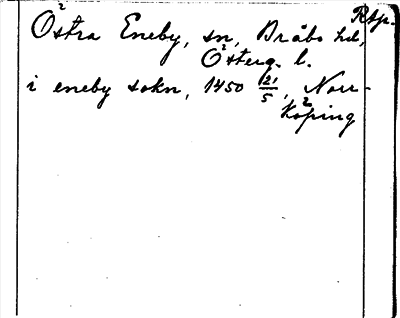 Rbp.
Östra Eneby, sn, Bråbo hd,
Österg. l.
i eneby sokn, 1450 21/5, Norr-
köping